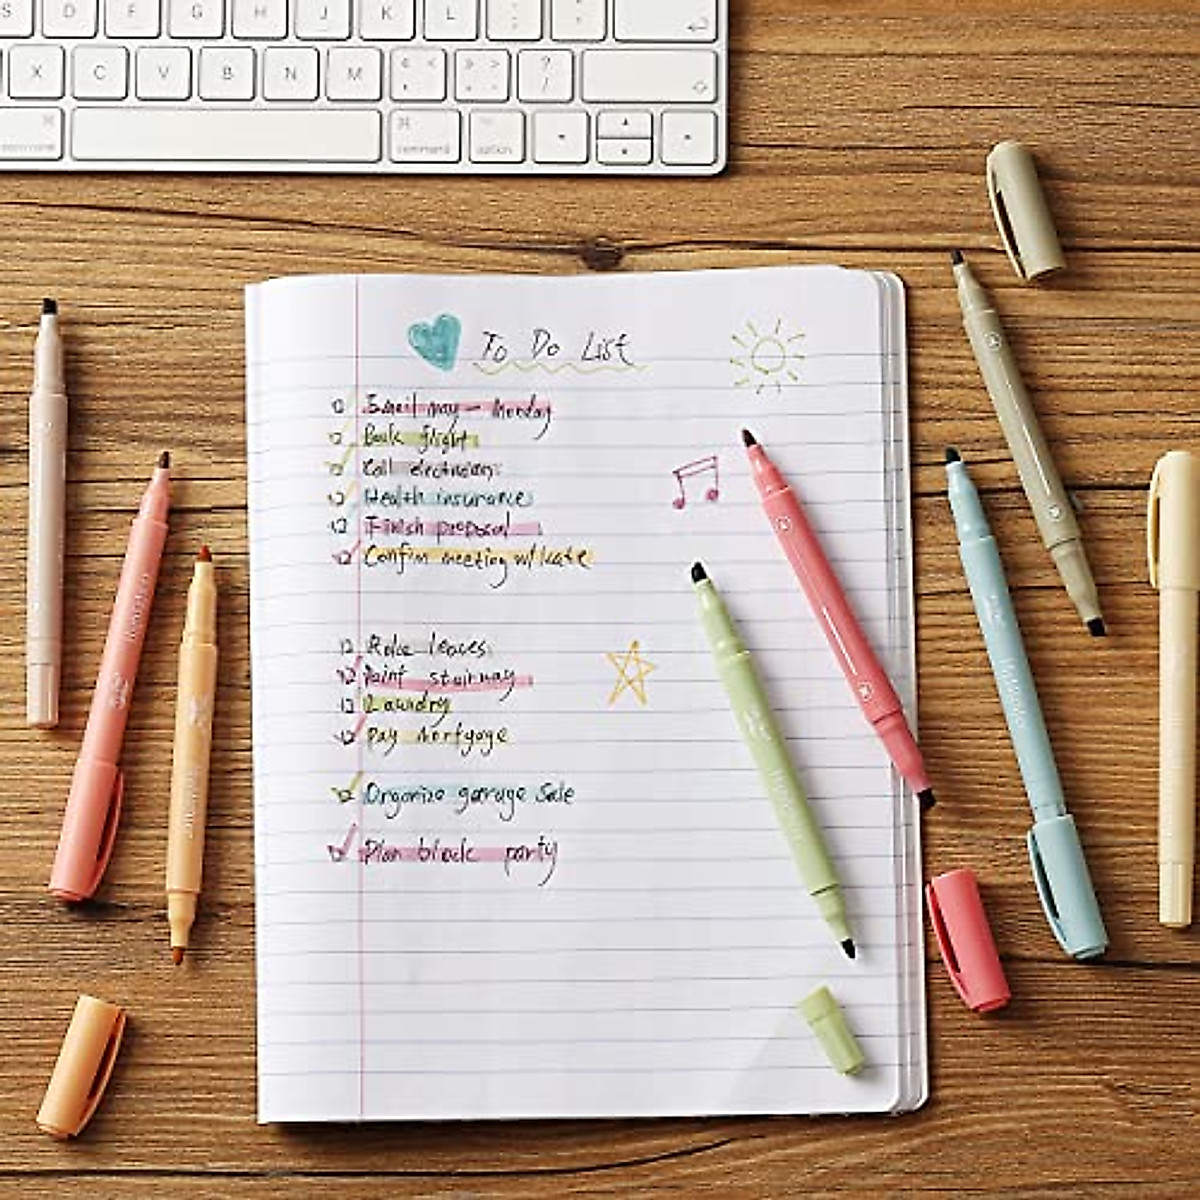 S D F G H J K L : ; " '
X C V B N M < , > . ? /
⌘ command ⌘ command option
To Do List
Email may - Monday
Book flight
Call electrician
Health insurance
Finish proposal
Confirm meeting w/ Kate
Rake leaves
Paint stairway
Laundry
Pay mortgage
Organize garage Sale
Plan block party